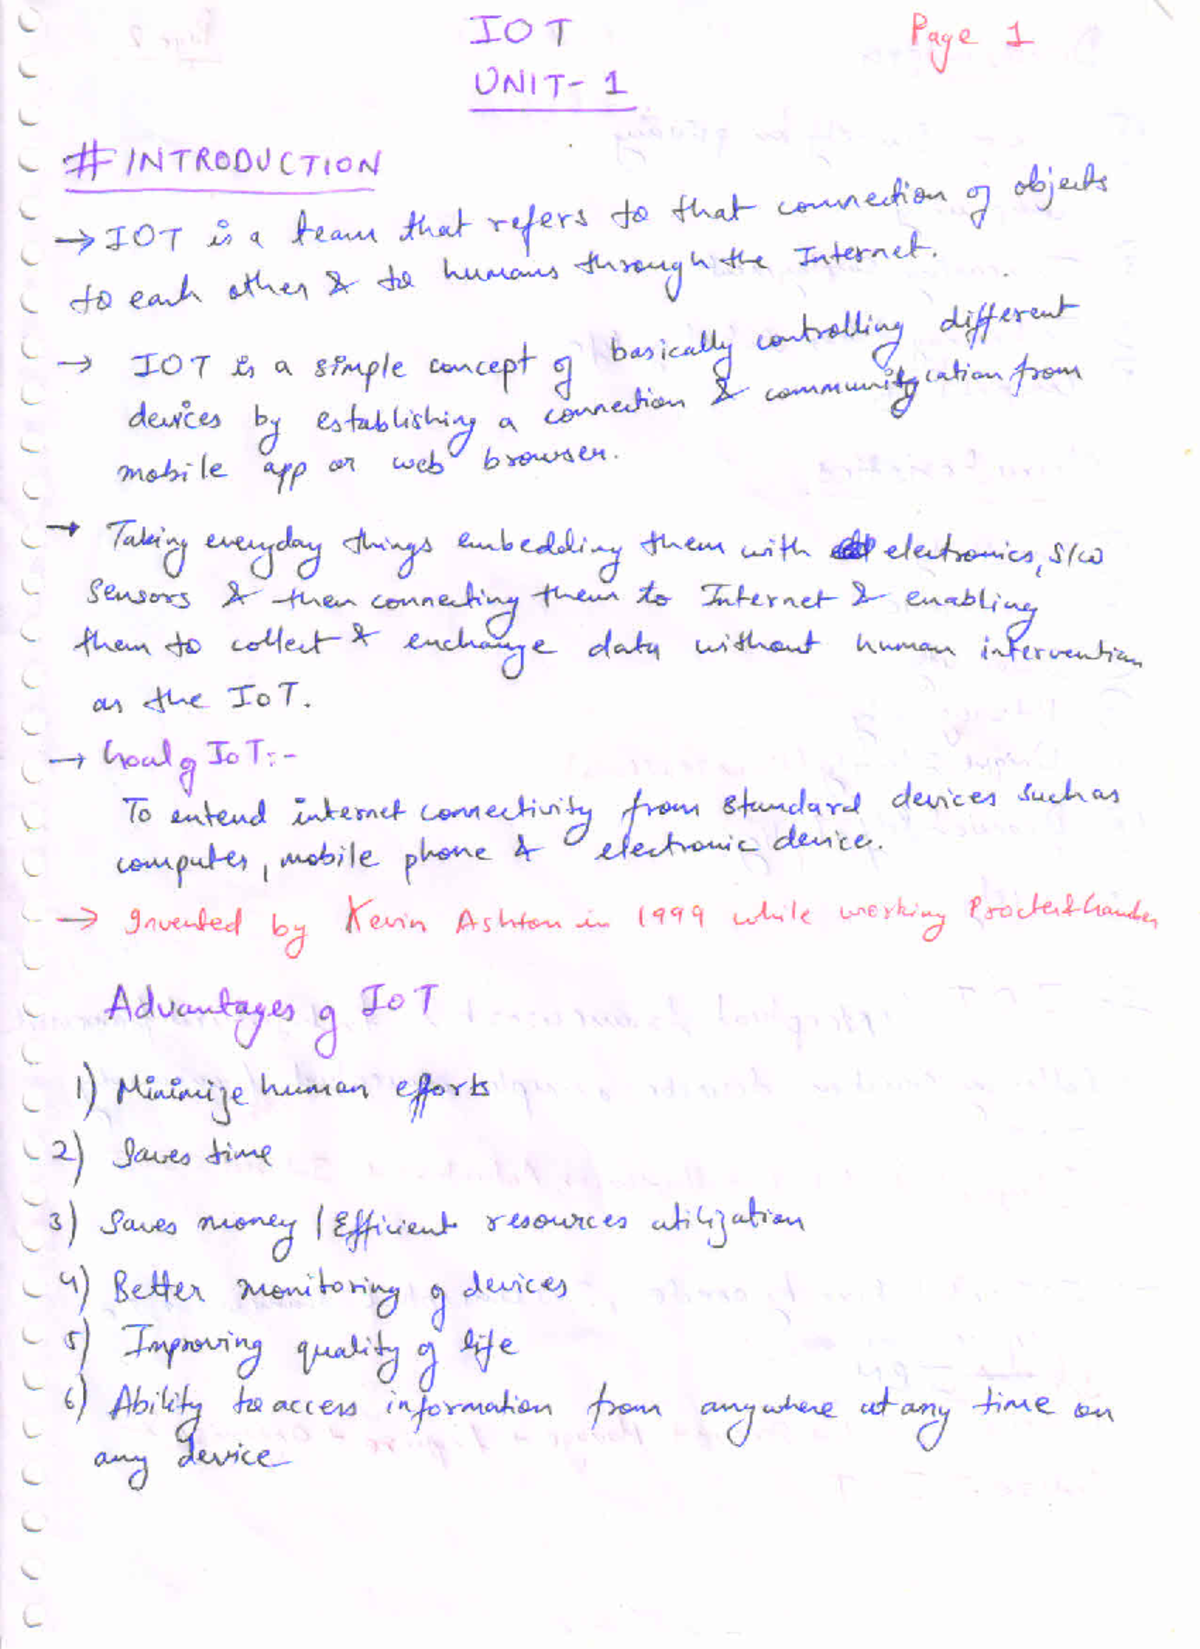 IOT
Page 1
UNIT-1
# INTRODUCTION
→ IOT is a team that refers to that connection of objects
to each other & to humans through the Internet.
→ IOT is a simple concept of basically controlling different
devices by establishing a connection & communitycation from
mobile app or web browser.
→ Taking everyday things embedding them with electronics, S/W
sensors & then connecting them to Internet & enabling
them to collect & exchange data without human intervention
as the IoT.
→ Goal of IoT:-
To extend internet connectivity from standard devices such as
computer, mobile phone & electronic device.
→ Invented by Kevin Ashton in 1999 while working Procter & Gamber
Advantages of IoT
1) Minimize human efforts
2) Saves time
3) Saves money / Efficient resources utilization
4) Better monitoring of devices
5) Improving quality of life
6) Ability to access information from anywhere at any time on
any device